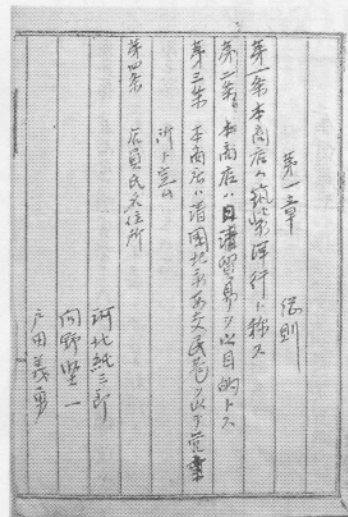 第一章 総則
第一条 本商店ハ筑紫洋行ト称ス
第二条 本商店ハ日清貿易ヲ以目的トス
第三条 本商店ハ清国北京東交民巷ヲ以テ営業
所ト定ム
第四条 店員氏名住所
河北純三郎
向野堅一
戸田義勇